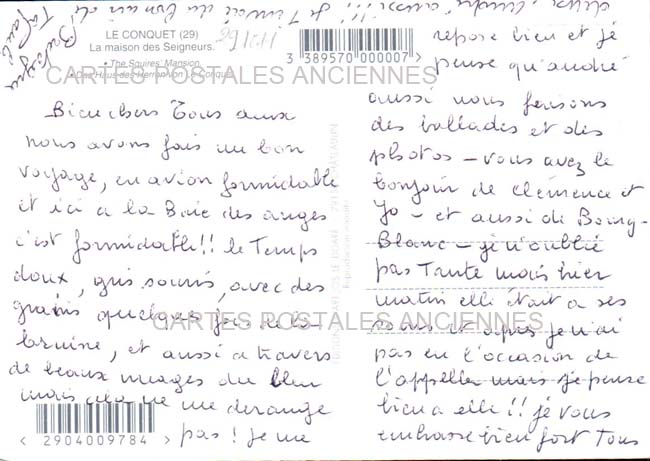 LE CONQUET (29)
La maison des Seigneurs.
• The Squires' Mansion.
3 389570 000007
CARTES POSTALES ANCIENNES
Bien chers Tous deux
nous avons fais un bon
voyage, en avion formidable
et ici a la Baie des anges
c'est formidable!! le Temps
doux, gris souris, avec des
grains quelques fois de la
bruine, et aussi a travers
de beaux nuages du bleu
mais cela ne me derange
pas! Je me
repose bien et je
pense qu'andré
aussi nous fesons
des ballades et des
photos – vous avez le
bonjour de Clémence et
Jo – et aussi de Bourg-
Blanc – je n'oublie
pas Tante mais hier
matin elle était a ses
et apres je n'ai
pas eu l'occasion de
l'appeller mais je pense
bien a elle!! je vous
embrasse bien fort Tous
aussi!!! je
Bretagne
CARTES POSTALES ANCIENNES
2904009784